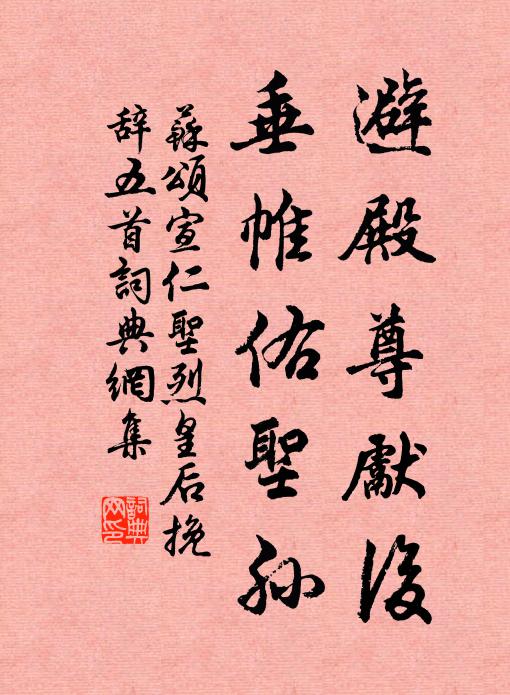 避殿尊獻後
垂帷佑聖孫
蘇頌宣仁聖烈皇后挽
辞五首詞典網集
詞典网印